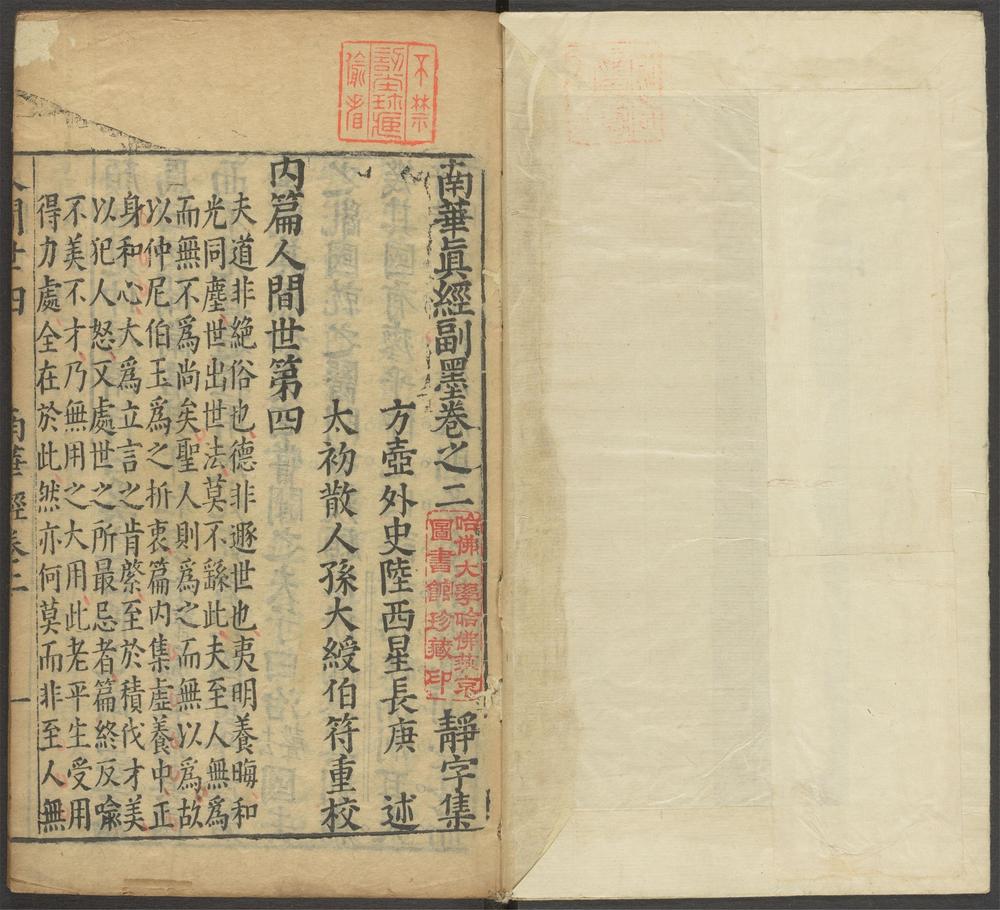 不禁
南華眞經副墨卷之二 靜字集
哈佛大學哈佛燕京
圖書館珍藏印
方壺外史陸西星長庚 述
太初散人孫大綬伯符重校
內篇人間世第四
夫道非絕俗也德非遯世也夷明養晦和
光同塵世出世法莫不繇此夫至人無爲
而無不爲尚矣聖人則爲之而無以爲故
以仲尼伯玉爲之折衷篇內集虛養中正
身和心大爲立言之肯綮至於積伐才美
以犯人怒又處世之所最忌者篇終反喩
不美不才乃無用之大用此老平生受用
得力處全在於此然亦何莫而非至人無
人間世四 南華經卷二 一